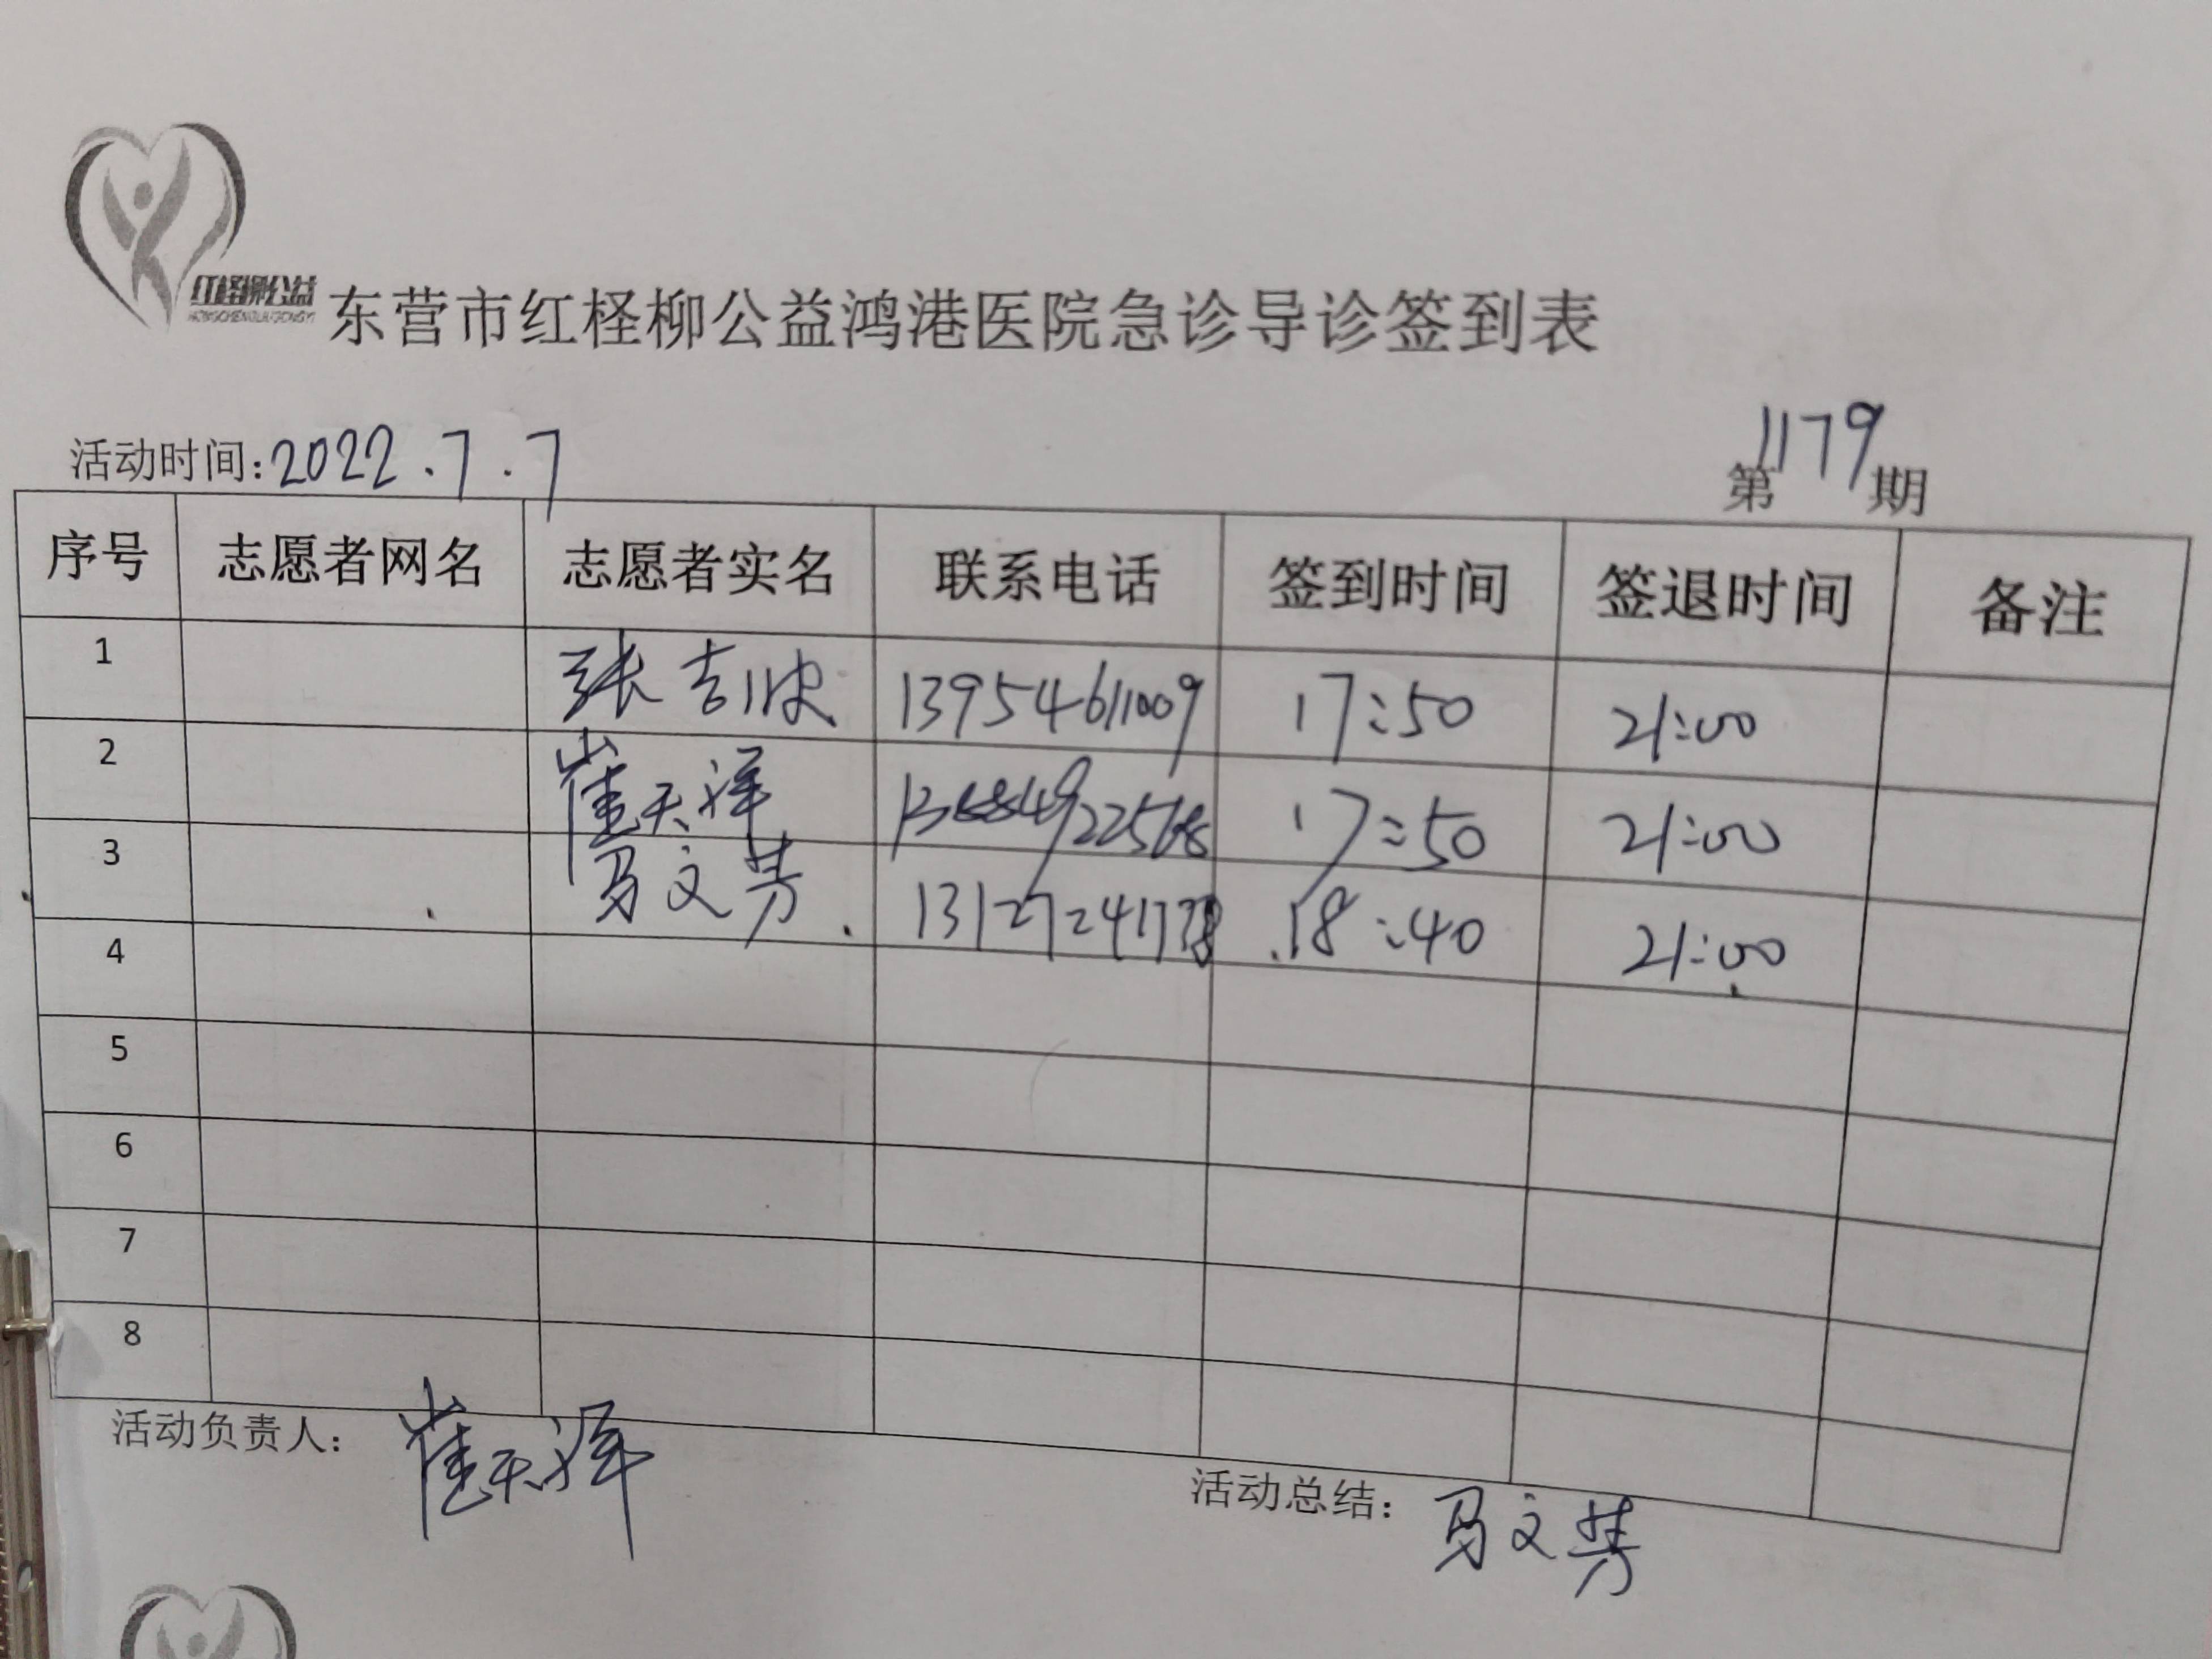 红柽柳公益
东营市红柽柳公益鸿港医院急诊导诊签到表
活动时间:2022.7.7
第1179期
序号 志愿者网名 志愿者实名 联系电话 签到时间 签退时间 备注
1 张吉 13954611009 17:50 21:00
2 崔天洋 17:50 21:00
3 马文芳 13127241778 18:40 21:00
4
5
6
7
8
活动负责人: 崔天洋
活动总结: 马文芳